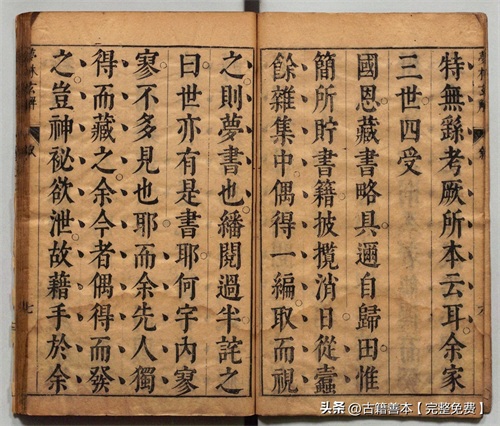 特無繇考厥所本云耳余家
三世四受
國恩藏書略具邇自歸田惟
簡所貯書籍披攬消日從蠹
餘雜集中偶得一編取而視
之則夢書也繙閱過半詫之
曰世亦有是書耶何字內寥
寥不多見也耶而余先人獨
得而藏之余今者偶得而發
之豈神祕欲泄故藉手於余
七
头条@古籍善本【完整免费】